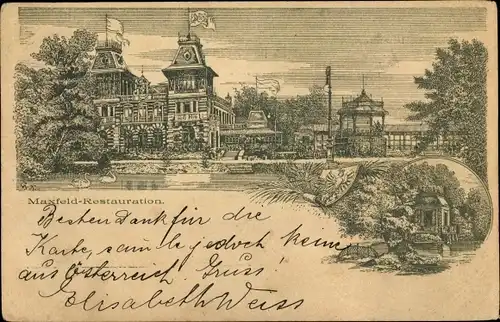 Maxfeld-Restauration.
Besten Dank für die
Karte, samle jedoch keine
aus Österreich. Gruss!
Elisabeth Weiss